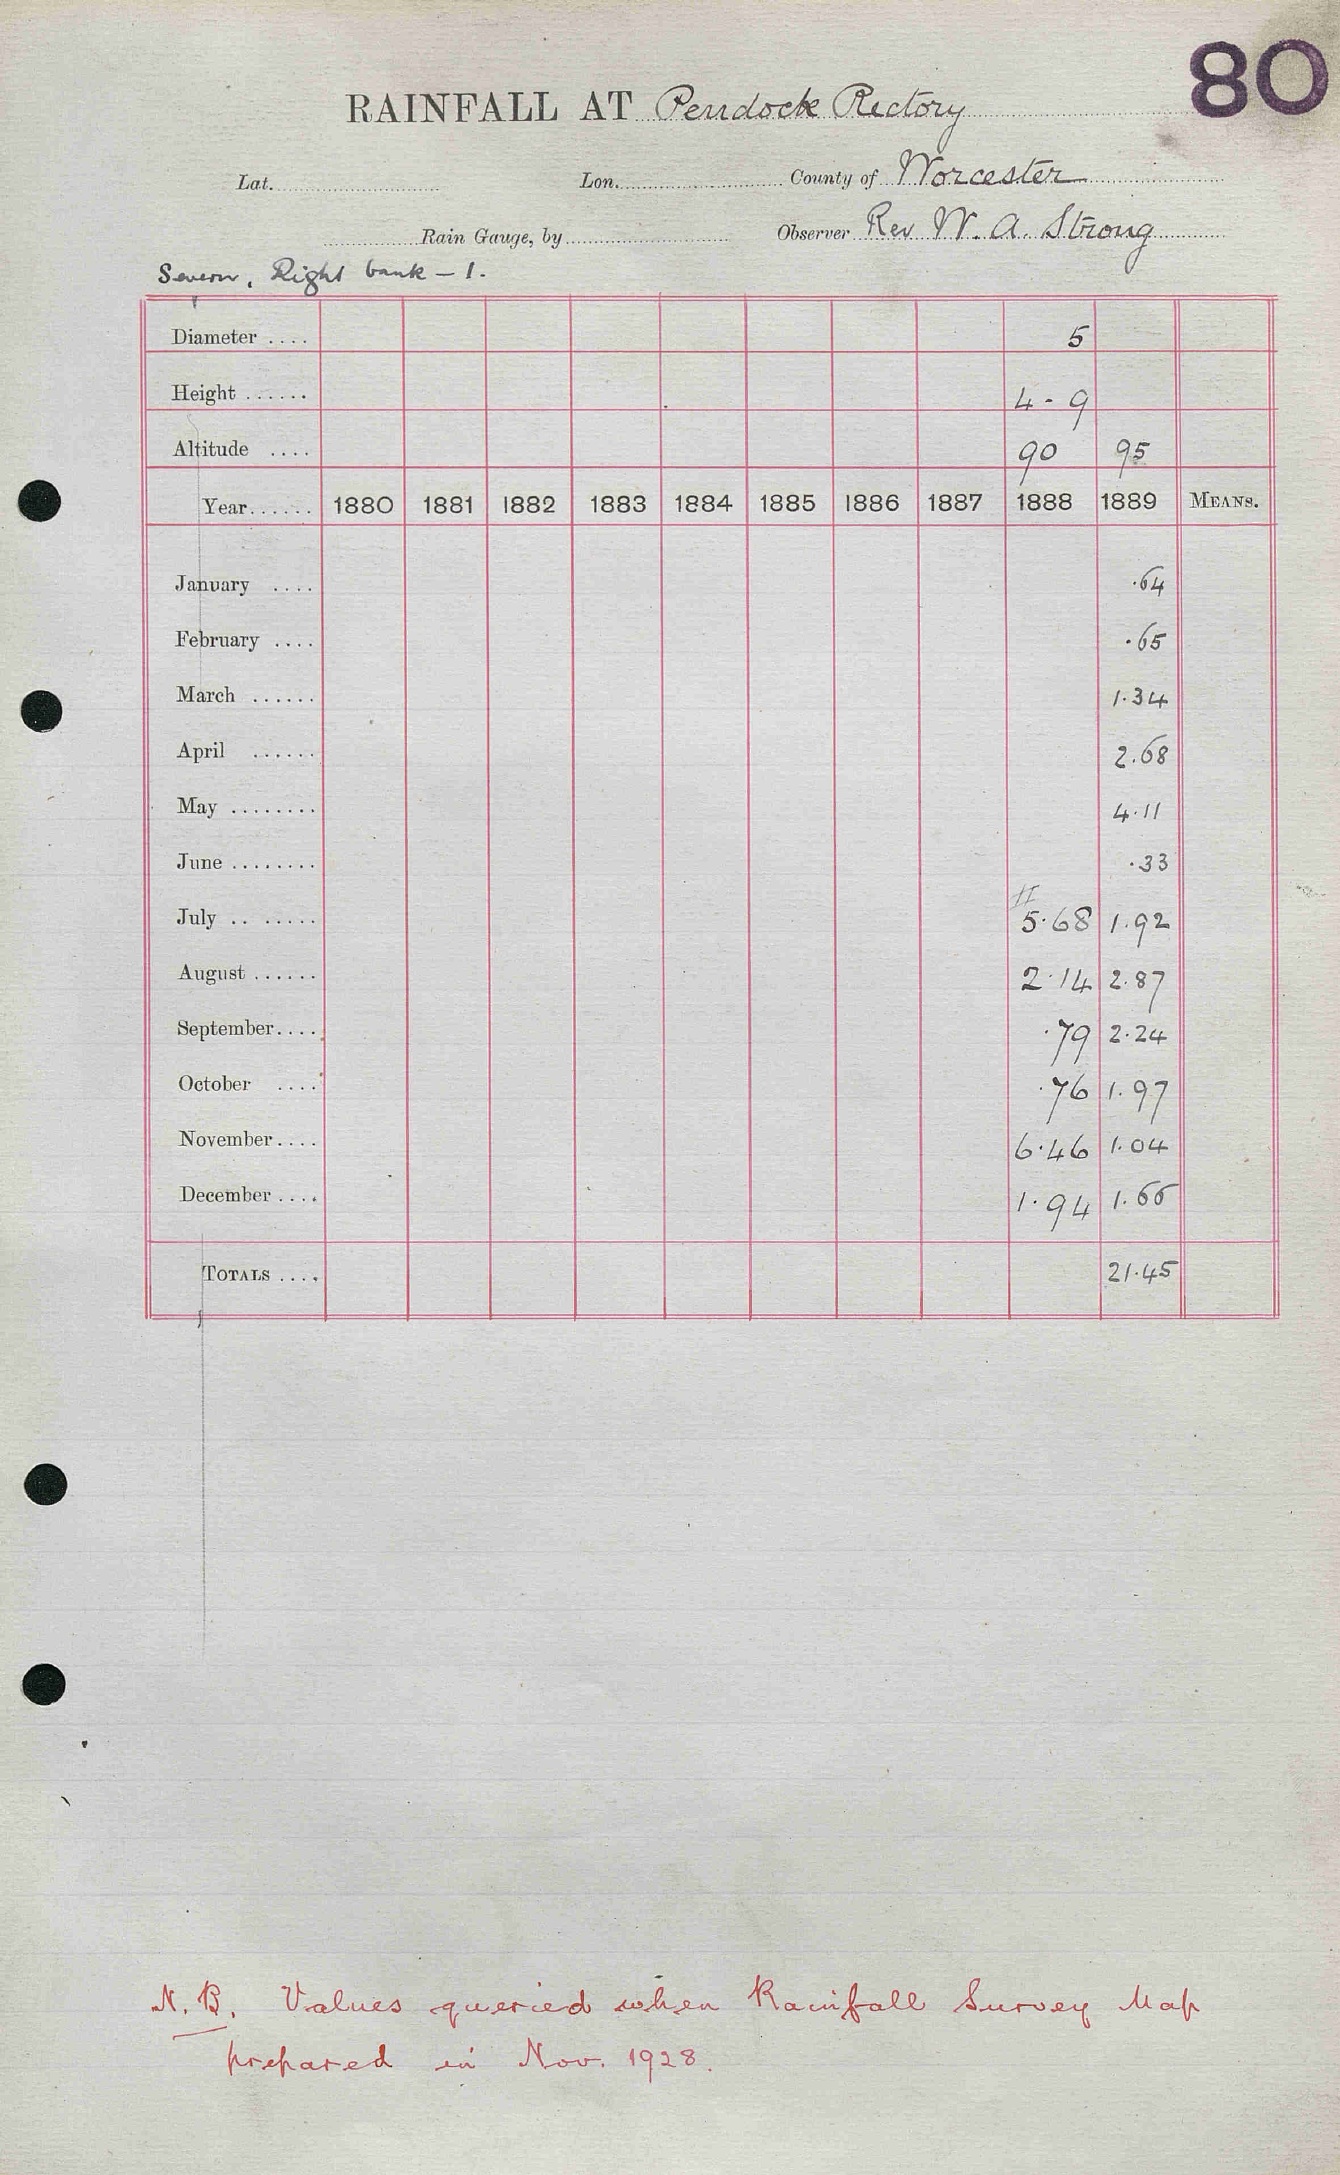 80
RAINFALL AT Pendock Rectory
Lat. Lon. County of Worcester
Rain Gauge, by Observer Rev W. A. Strong
Severn, Right bank - 1.
Diameter .... 5
Height ...... 4 - 9
Altitude .... 90 95
Year...... 1880 1881 1882 1883 1884 1885 1886 1887 1888 1889 MEANS.
January .... .64
February .... .65
March ...... 1.34
April ...... 2.68
May ........ 4.11
June ........ .33
II
July .. ..... 5.68 1.92
August ...... 2.14 2.87
September.... .79 2.24
October .... .76 1.97
November.... 6.46 1.04
December .... 1.94 1.66
TOTALS .... 21.45
N.B. Values queried when Rainfall Survey Map
prepared in Nov. 1928.